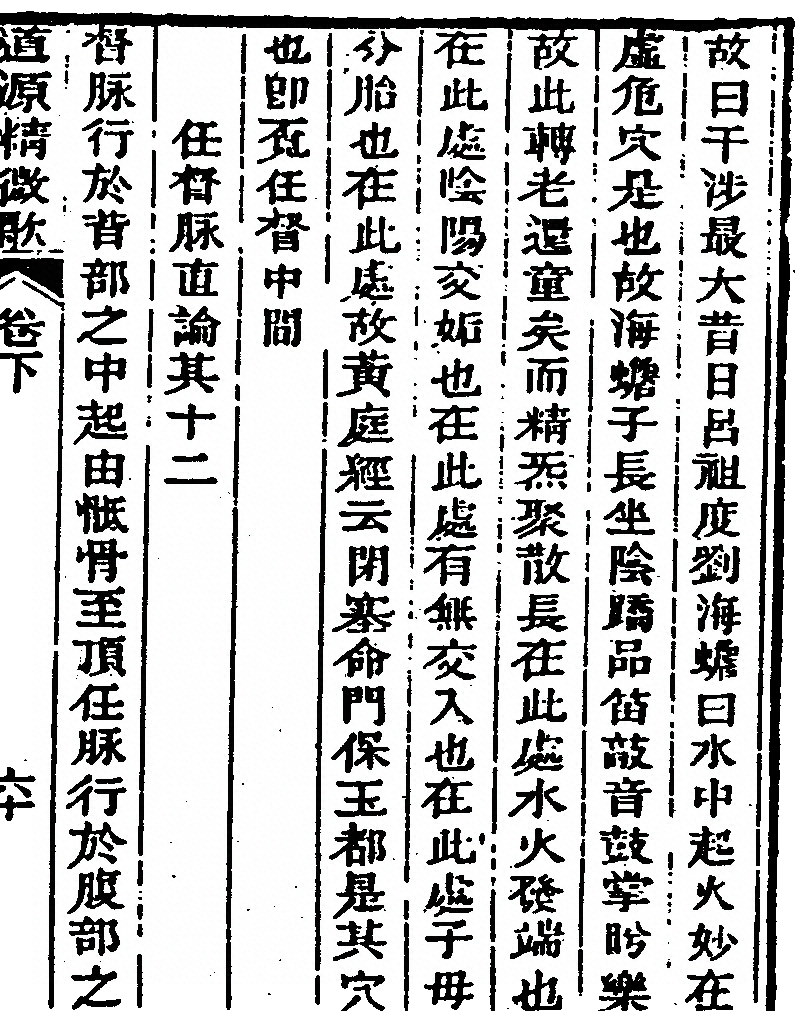 故曰干涉最大昔日呂祖度劉海蟾曰水中起火妙在
虛危穴是也故海蟾子長坐陰蹻品笛敲音鼓掌盻樂
故此轉老還童矣而精炁聚散長在此處水火發端也
在此處陰陽交姤也在此處有無交入也在此處子毋
分胎也在此處故黃庭經云閉塞命門保玉都是其穴
也卽在任督中間
任督脉直論其十二
督脉行於背部之中起由骶骨至頂任脉行於腹部之
道源精微歌 卷下 六十